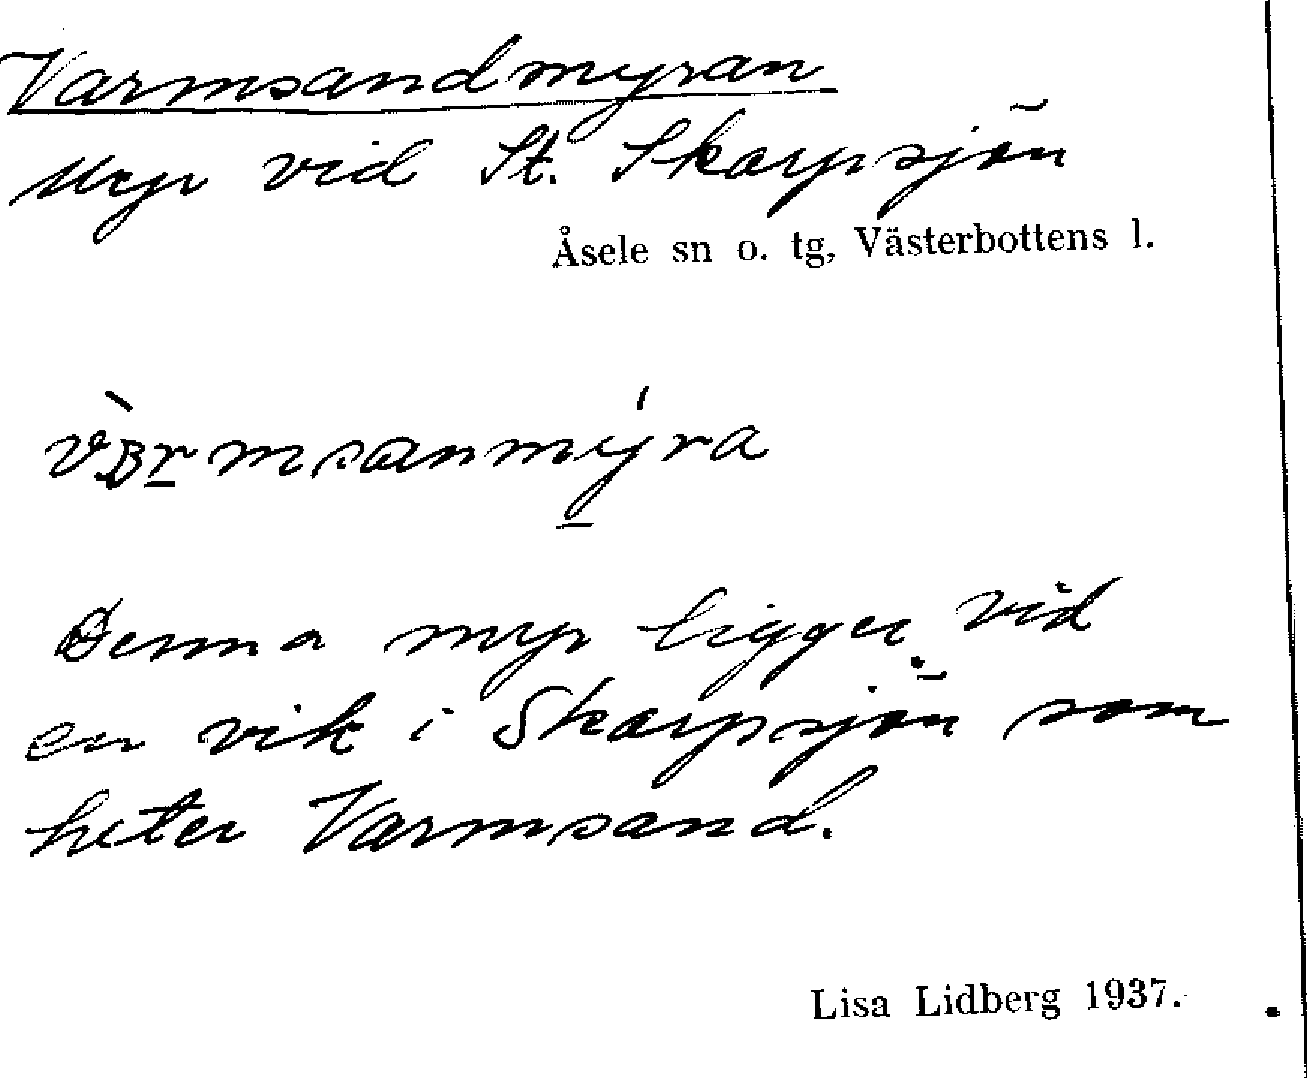 Varmsandmyran
Myr vid St. Skarpsjön
Åsele sn o. tg, Västerbottens l.
vàrmsanmýra
Denna myr ligger vid
en vik i Skarpsjön som
heter Varmsand.
Lisa Lidberg 1937.